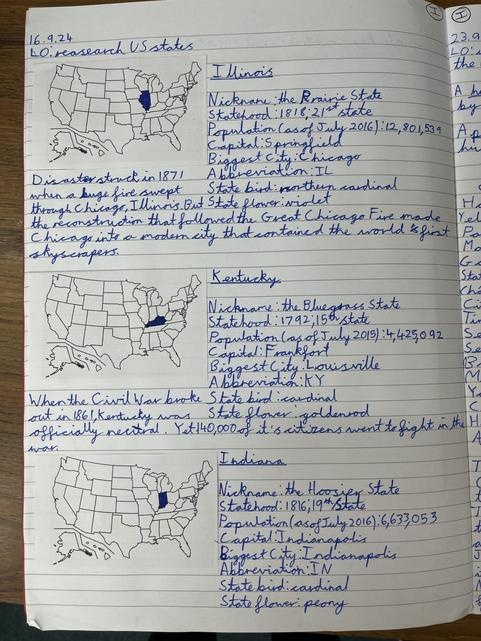 16.9.24
LO: reasearch US states
Illinois
Nickname: the Prairie State
Statehood: 1818, 21st state
Population (as of July 2016): 12,801,539
Capital: Springfield
Biggest City: Chicago
Abbreviation: IL
State bird: northern cardinal
State flower: violet
Disaster struck in 1871
when a huge fire swept
through Chicago, Illinois. But
the reconstruction that followed the Great Chicago Fire made
Chicago into a modern city that contained the world's first
skyscrapers.
Kentucky
Nickname: the Bluegrass State
Statehood: 1792, 15th state
Population (as of July 2015): 4,425,092
Capital: Frankfort
Biggest City: Louisville
Abbreviation: KY
State bird: cardinal
State flower: goldenrod
When the Civil War broke
out in 1861, Kentucky was
officially neutral. Yet 140,000 of it's citizens went to fight in the
war.
Indiana
Nickname: the Hoosier State
Statehood: 1816, 19th State
Population (as of July 2016): 6,633,053
Capital: Indianapolis
Biggest City: Indianapolis
Abbreviation: IN
State bird: cardinal
State flower: peony
23.9
LO:
the